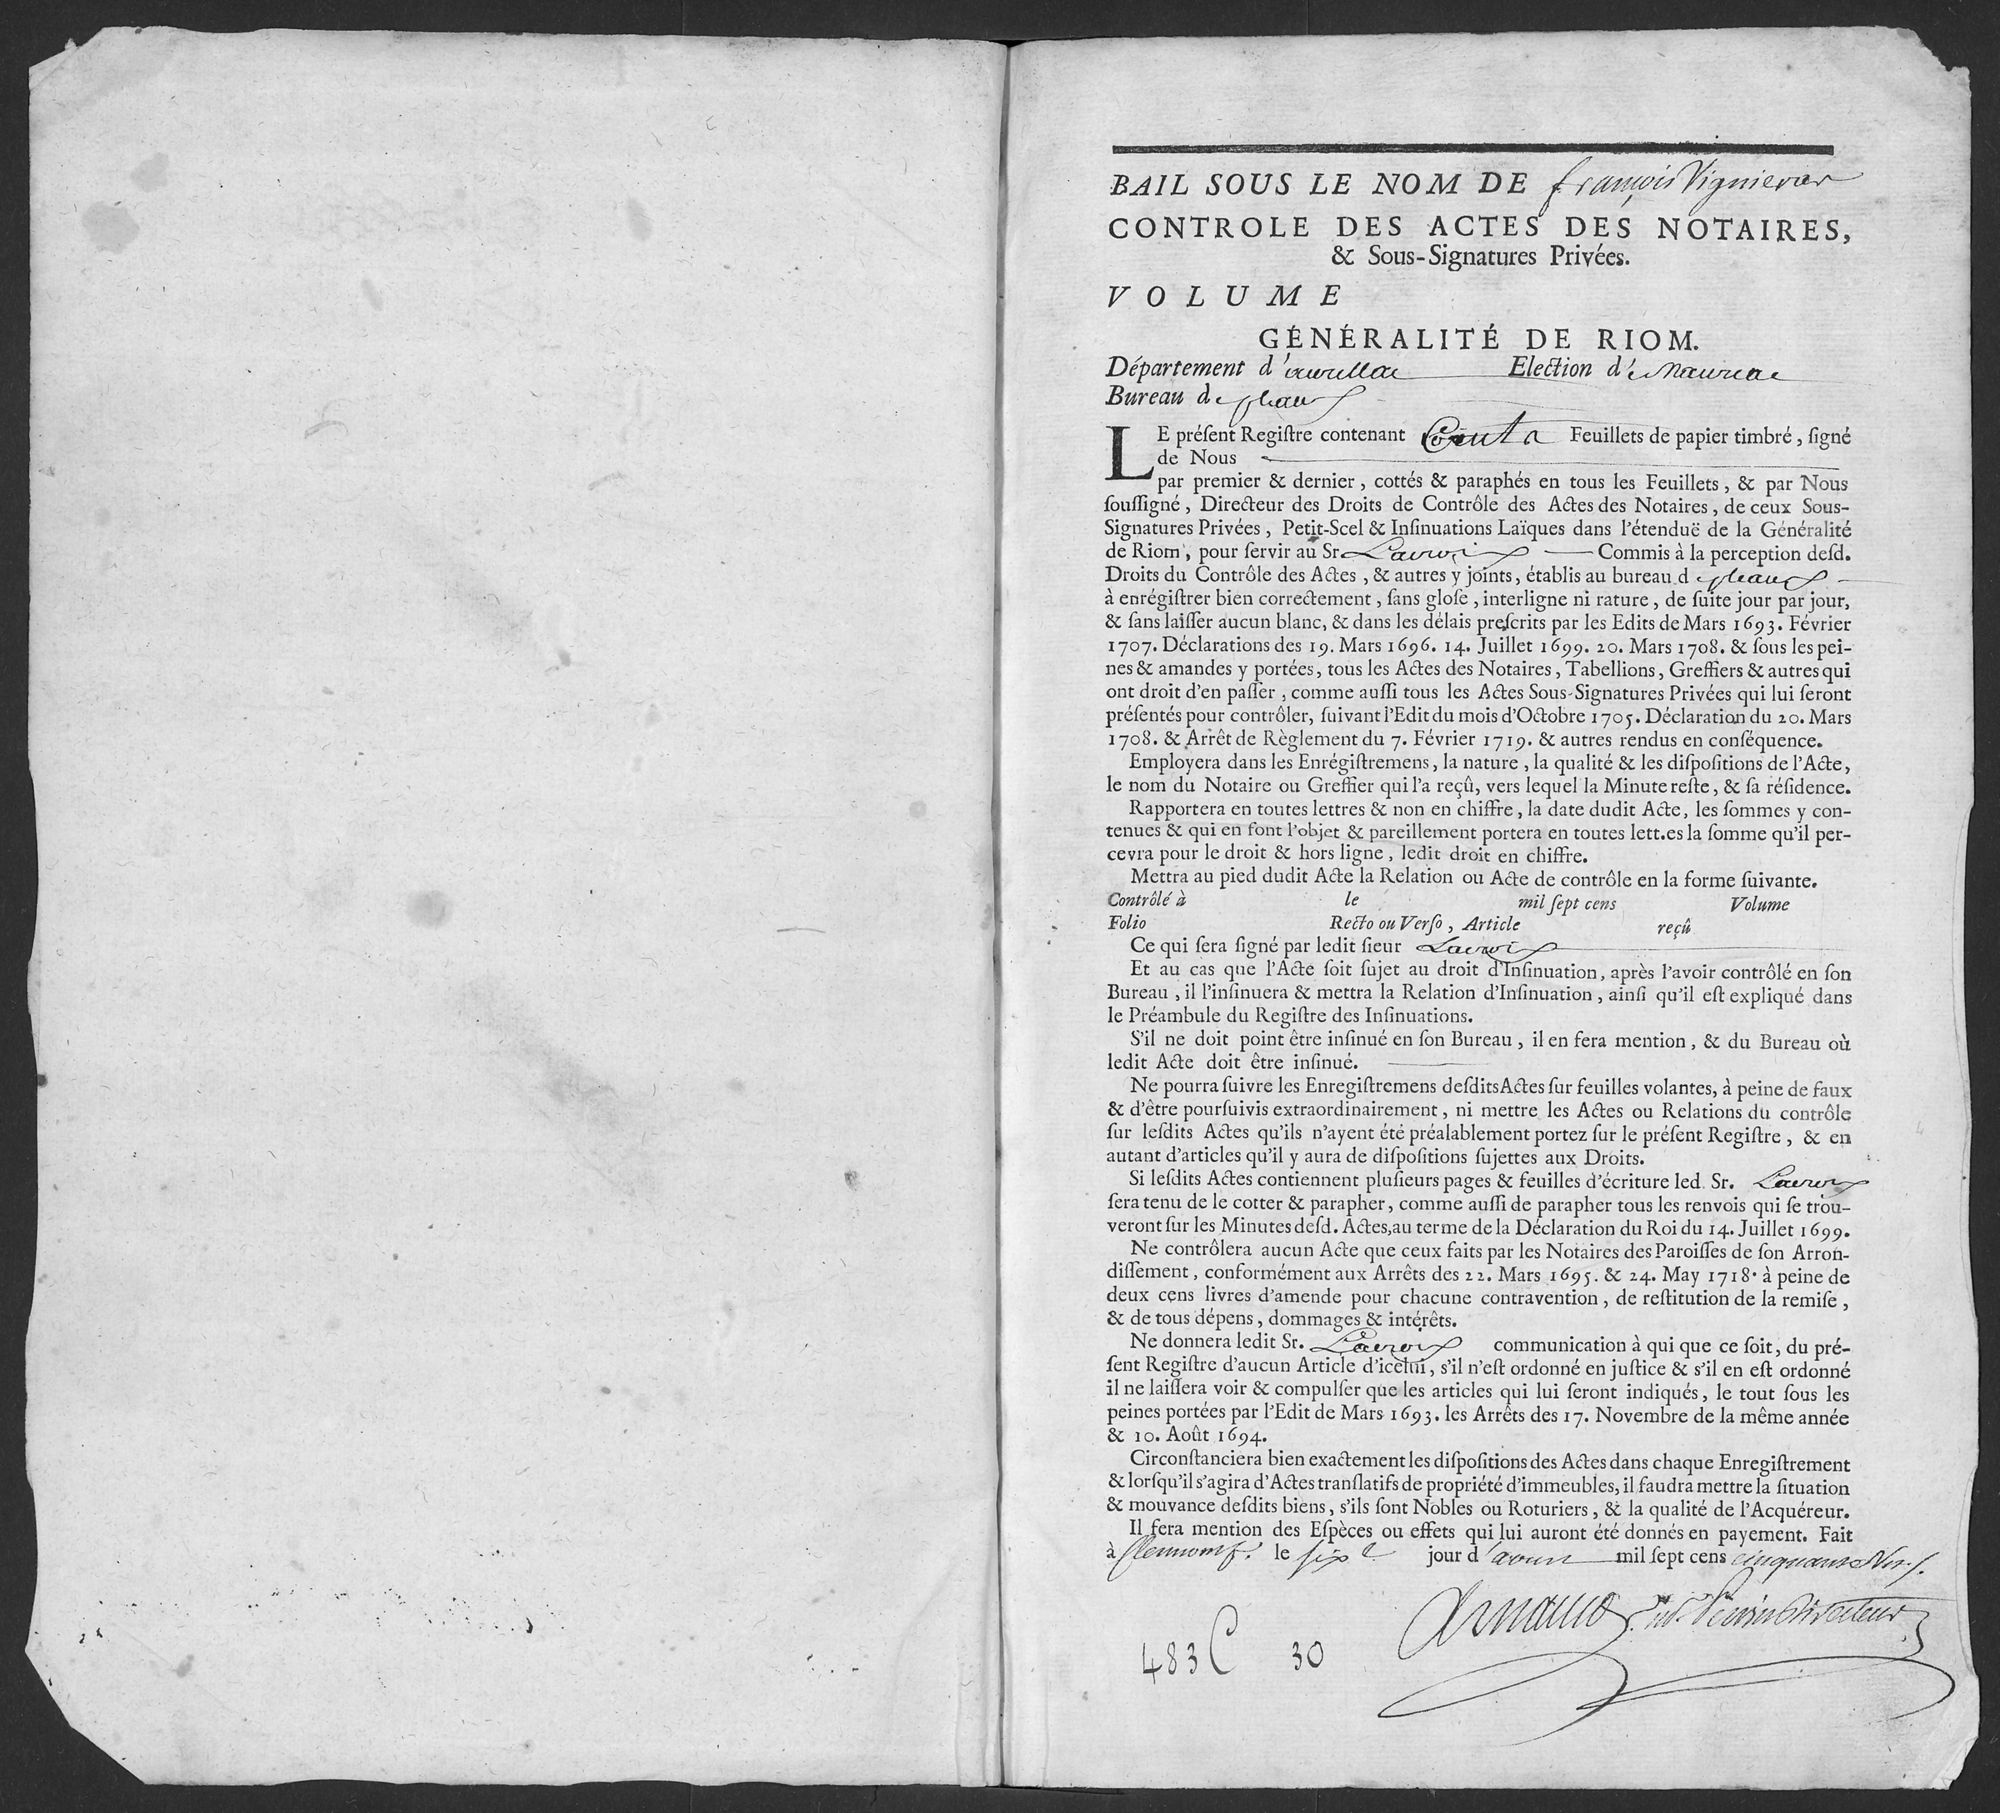 BAIL SOUS LE NOM DE françois Vignier
CONTROLE DES ACTES DES NOTAIRES,
& Sous-Signatures Privées.
VOLUME
GÉNÉRALITÉ DE RIOM.
Département d'aurillac Election d'e Mauriac
Bureau de pleaux
LE préſent Regiſtre contenant Feuillets de papier timbré, ſigné
de Nous
par premier & dernier, cottés & paraphés en tous les Feuillets, & par Nous
ſouſſigné, Directeur des Droits de Contrôle des Actes des Notaires, de ceux Sous-
Signatures Privées, Petit-Scel & Inſinuations Laïques dans l'étenduë de la Généralité
de Riom, pour ſervir au Sr Lacroix Commis à la perception deſd.
Droits du Contrôle des Actes, & autres y joints, établis au bureau de pleaux
à enrégiſtrer bien correctement, ſans gloſe, interligne ni rature, de ſuite jour par jour,
& ſans laiſſer aucun blanc, & dans les délais preſcrits par les Edits de Mars 1693. Février
1707. Déclarations des 19. Mars 1696. 14. Juillet 1699. 20. Mars 1708. & ſous les pei-
nes & amandes y portées, tous les Actes des Notaires, Tabellions, Greffiers & autres qui
ont droit d'en paſſer, comme auſſi tous les Actes Sous-Signatures Privées qui lui ſeront
préſentés pour contrôler, ſuivant l'Edit du mois d'Octobre 1705. Déclaration du 20. Mars
1708. & Arrêt de Règlement du 7. Février 1719. & autres rendus en conſéquence.
Employera dans les Enrégiſtremens, la nature, la qualité & les diſpoſitions de l'Acte,
le nom du Notaire ou Greffier qui l'a reçû, vers lequel la Minute reſte, & ſa réſidence.
Rapportera en toutes lettres & non en chiffre, la date dudit Acte, les ſommes y con-
tenues & qui en font l'objet & pareillement portera en toutes lett.es la ſomme qu'il per-
cevra pour le droit & hors ligne, ledit droit en chiffre.
Mettra au pied dudit Acte la Relation ou Acte de contrôle en la forme ſuivante.
Contrôlé à le mil ſept cens Volume
Folio Recto ou Verſo, Article reçû
Ce qui ſera ſigné par ledit ſieur Lacroix
Et au cas que l'Acte ſoit ſujet au droit d'Inſinuation, après l'avoir contrôlé en ſon
Bureau, il l'inſinuera & mettra la Relation d'Inſinuation, ainſi qu'il eſt expliqué dans
le Préambule du Regiſtre des Inſinuations.
S'il ne doit point être inſinué en ſon Bureau, il en fera mention, & du Bureau où
ledit Acte doit être inſinué.
Ne pourra ſuivre les Enregiſtremens deſdits Actes ſur feuilles volantes, à peine de faux
& d'être pourſuivis extraordinairement, ni mettre les Actes ou Relations du contrôle
ſur leſdits Actes qu'ils n'ayent été préalablement portez ſur le préſent Regiſtre, & en
autant d'articles qu'il y aura de diſpoſitions ſujettes aux Droits.
Si leſdits Actes contiennent pluſieurs pages & feuilles d'écriture led. Sr. Lacroix
ſera tenu de le cotter & parapher, comme auſſi de parapher tous les renvois qui ſe trou-
veront ſur les Minutes deſd. Actes, au terme de la Déclaration du Roi du 14. Juillet 1699.
Ne contrôlera aucun Acte que ceux faits par les Notaires des Paroiſſes de ſon Arron-
diſſement, conformément aux Arrêts des 22. Mars 1695. & 24. May 1718. à peine de
deux cens livres d'amende pour chacune contravention, de reſtitution de la remiſe,
& de tous dépens, dommages & intérêts.
Ne donnera ledit Sr. Lacroix communication à qui que ce ſoit, du pré-
ſent Regiſtre d'aucun Article d'icelui, s'il n'eſt ordonné en juſtice & s'il en eſt ordonné
il ne laiſſera voir & compulſer que les articles qui lui ſeront indiqués, le tout ſous les
peines portées par l'Edit de Mars 1693. les Arrêts des 17. Novembre de la même année
& 10. Août 1694.
Circonſtanciera bien exactement les diſpoſitions des Actes dans chaque Enregiſtrement
& lorſqu'il s'agira d'Actes tranſlatifs de propriété d'immeubles, il faudra mettre la ſituation
& mouvance deſdits biens, s'ils ſont Nobles ou Roturiers, & la qualité de l'Acquéreur.
Il fera mention des Eſpèces ou effets qui lui auront été donnés en payement. Fait
à Clermont f. le six e jour d'avril mil ſept cens
Arnaud
483 C 30